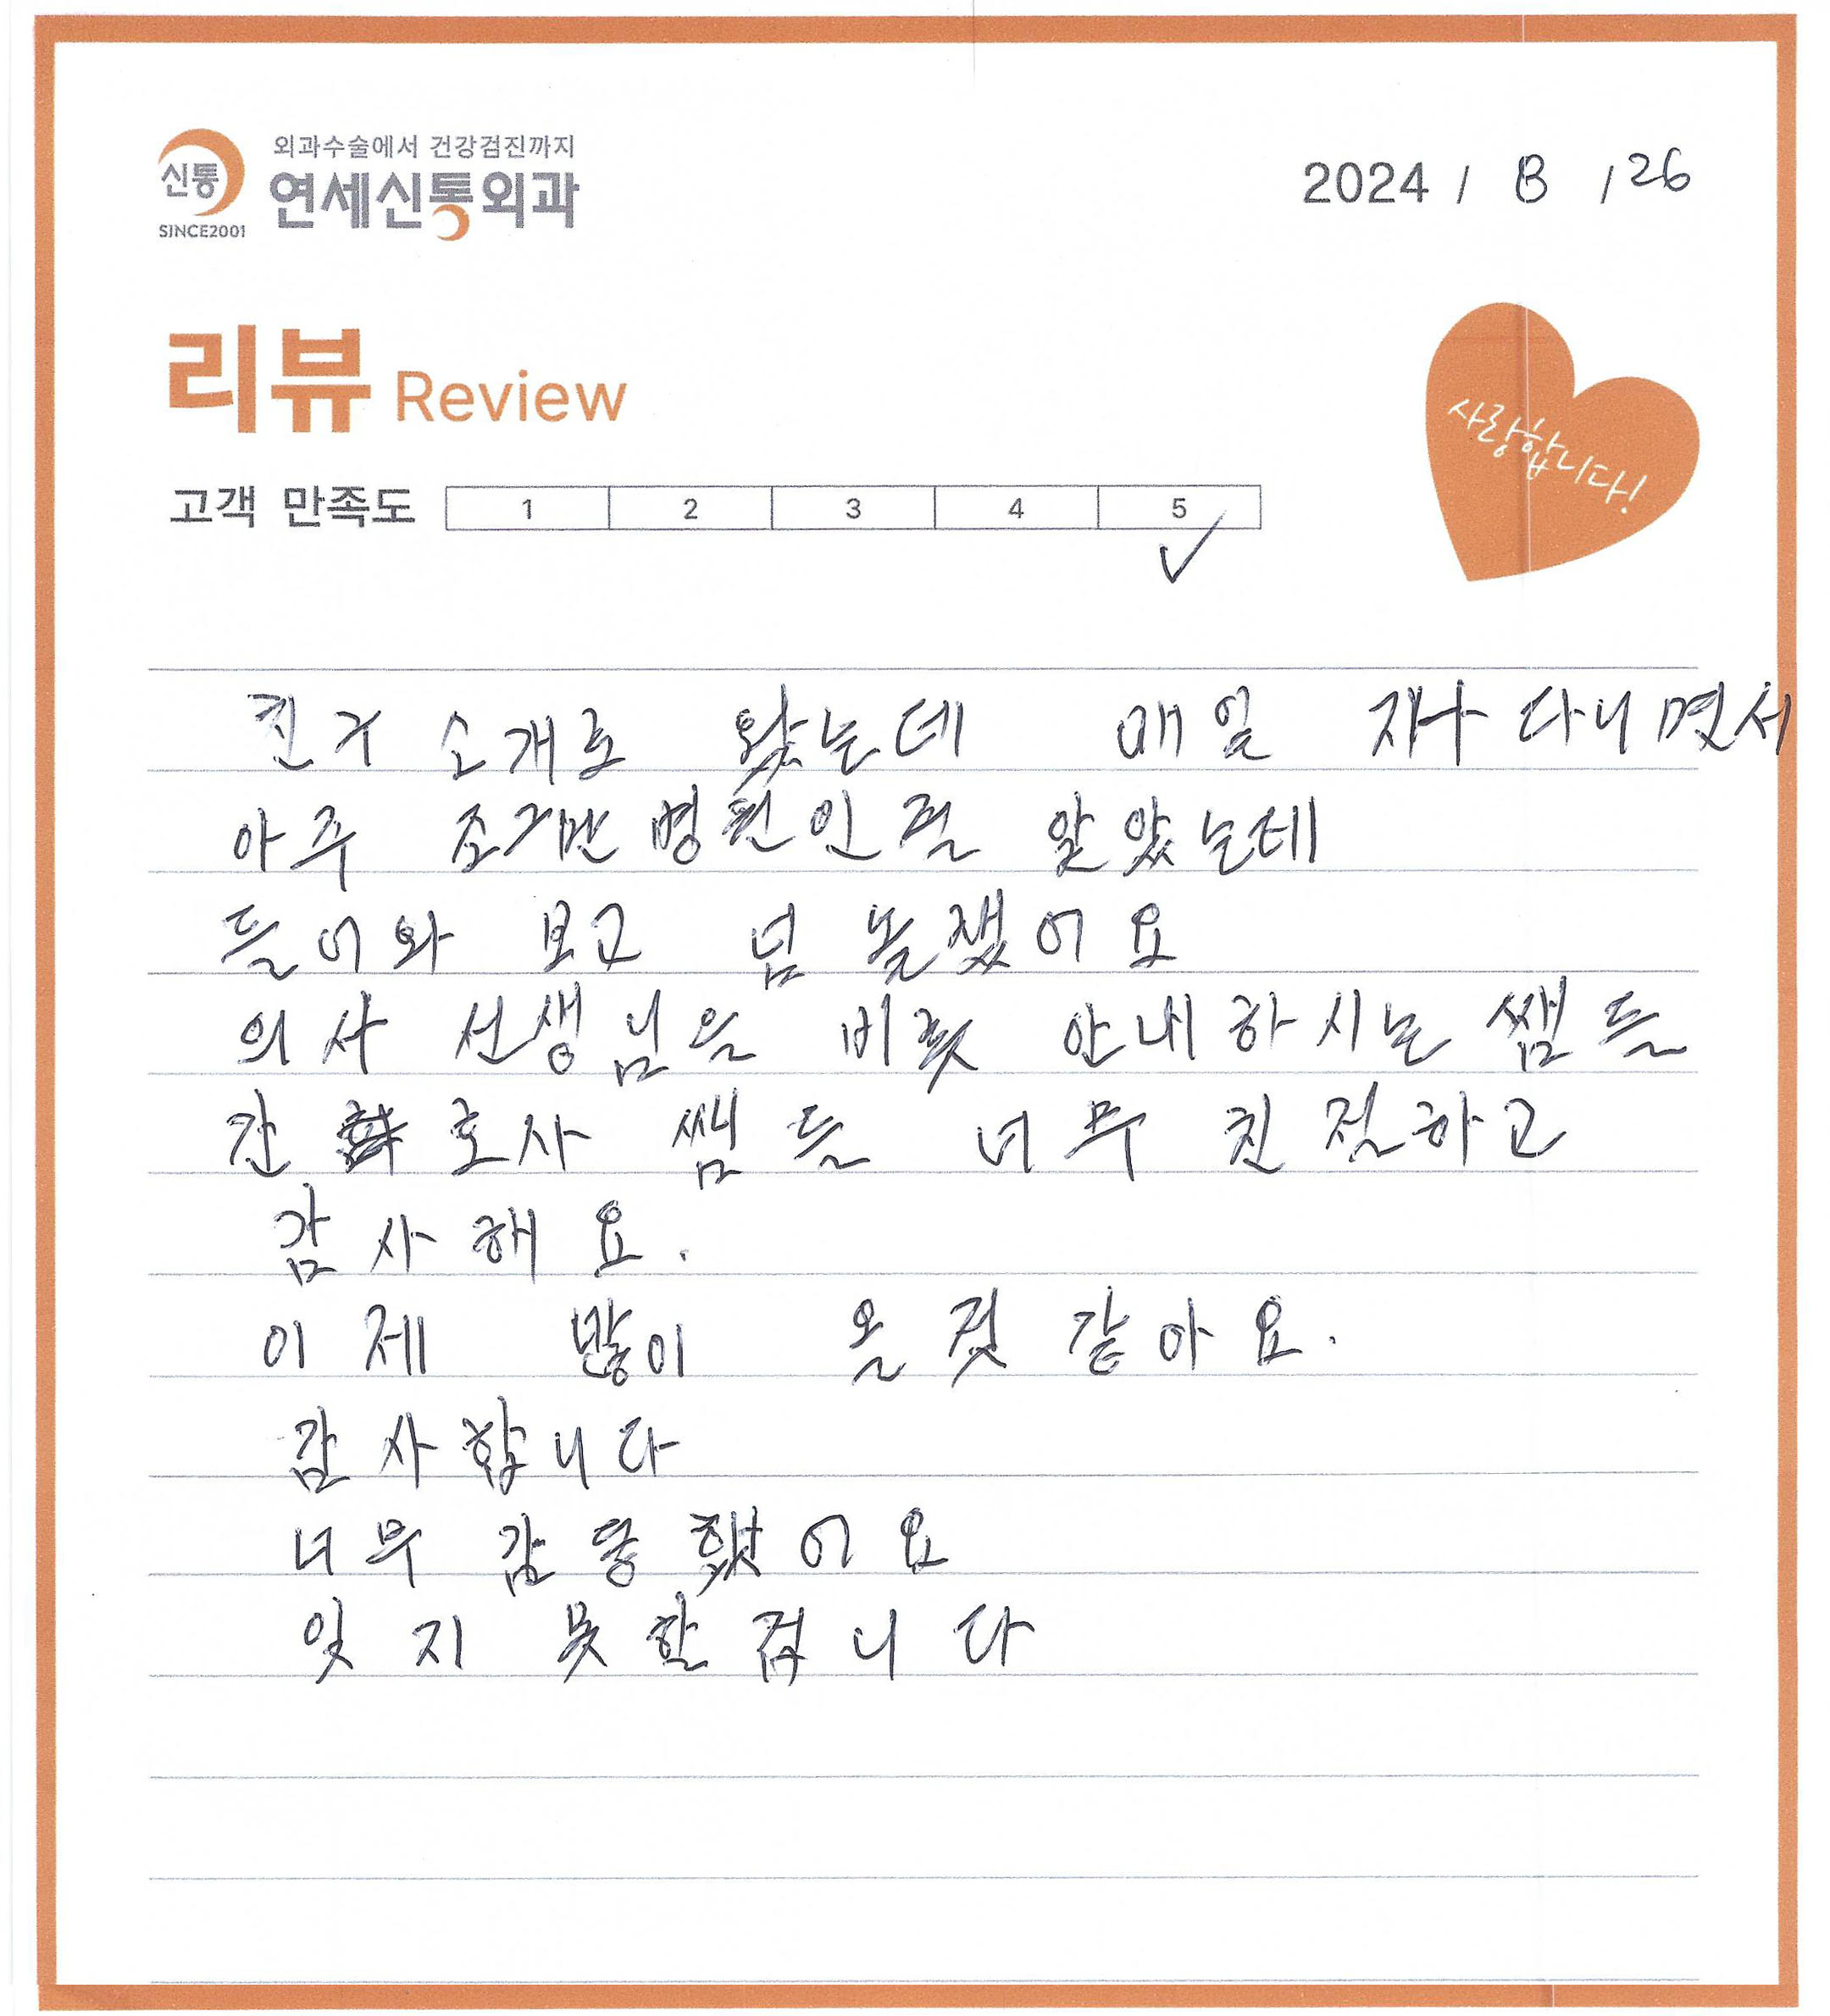 외과수술에서 건강검진까지
신통
연세신통외과
SINCE2001
2024 / 8 / 26
리뷰 Review
사랑합니다!
고객 만족도 1 2 3 4 5
친구 소개로 왔는데 매일 지나 다니면서
아주 조그만 병원인 줄 알았는데
들어와 보고 넘 놀랬어요
의사 선생님을 비롯 안내하시는 쌤들
간호사 쌤들 너무 친절하고
감사해요.
이제 많이 올것 같아요.
감사합니다
너무 감동했어요
잊지 못할겁니다